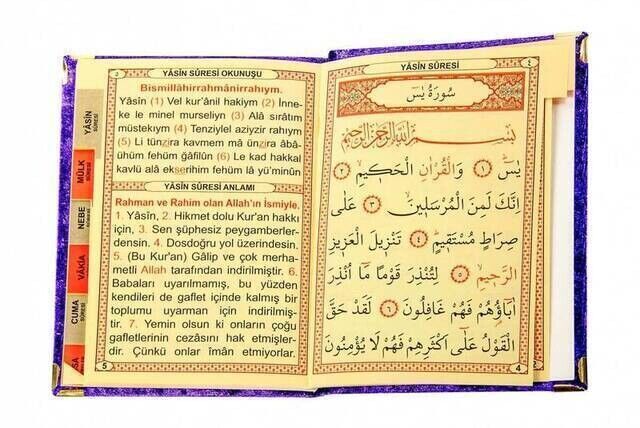 YÂSİN SÛRESİ OKUNUŞU
Bismillâhirrahmânirrahıym.
Yâsîn (1) Vel kur'ânil hakiym (2) İnne-
ke le minel murseliyn (3) Alâ sırâtım
müstekıym (4) Tenziylel aziyzir rahıym
(5) Li tünzira kavmem mâ ünzira âbâ-
ühüm fehüm ğâfilûn (6) Le kad hakkal
kavlü alâ ekserihim fehüm lâ yü'minûn
YÂSİN SÛRESİ ANLAMI
Rahman ve Rahim olan Allah'ın İsmiyle.
1. Yâsîn, 2. Hikmet dolu Kur'an hakkı
için, 3. Sen şüphesiz peygamberler-
densin. 4. Dosdoğru yol üzerindesin.
5. (Bu Kur'an) Gâlip ve çok merha-
metli Allah tarafından indirilmiştir. 6.
Babaları uyarılmamış, bu yüzden
kendileri de gaflet içinde kalmış bir
toplumu uyarman için indirilmiş-
tir. 7. Yemin olsun ki onların çoğu
gafletlerinin cezasını hak etmişler-
dir. Çünkü onlar îmân etmiyorlar.
5
YÂSİN SÛRESİ
MÜLK SÛRESİ
NEBE
VÂKIA
CUMA SÛRESİ
YÂSİN SÛRESİ
٤
سُورَةُ يٰسٓ
بِسْمِ اللّٰهِ الرَّحْمٰنِ الرَّحِيمِ
يٰسٓ ﴿١﴾ وَالْقُرْاٰنِ الْحَكِيمِ ﴿٢﴾
اِنَّكَ لَمِنَ الْمُرْسَلِينَ ﴿٣﴾ عَلٰى
صِرَاطٍ مُسْتَقِيمٍ ﴿٤﴾ تَنْزِيلَ الْعَزِيزِ
الرَّحِيمِ ﴿٥﴾ لِتُنْذِرَ قَوْمًا مَٓا اُنْذِرَ
اٰبَٓاؤُهُمْ فَهُمْ غَافِلُونَ ﴿٦﴾ لَقَدْ حَقَّ
الْقَوْلُ عَلٰٓى اَكْثَرِهِمْ فَهُمْ لَا يُؤْمِنُونَ
4